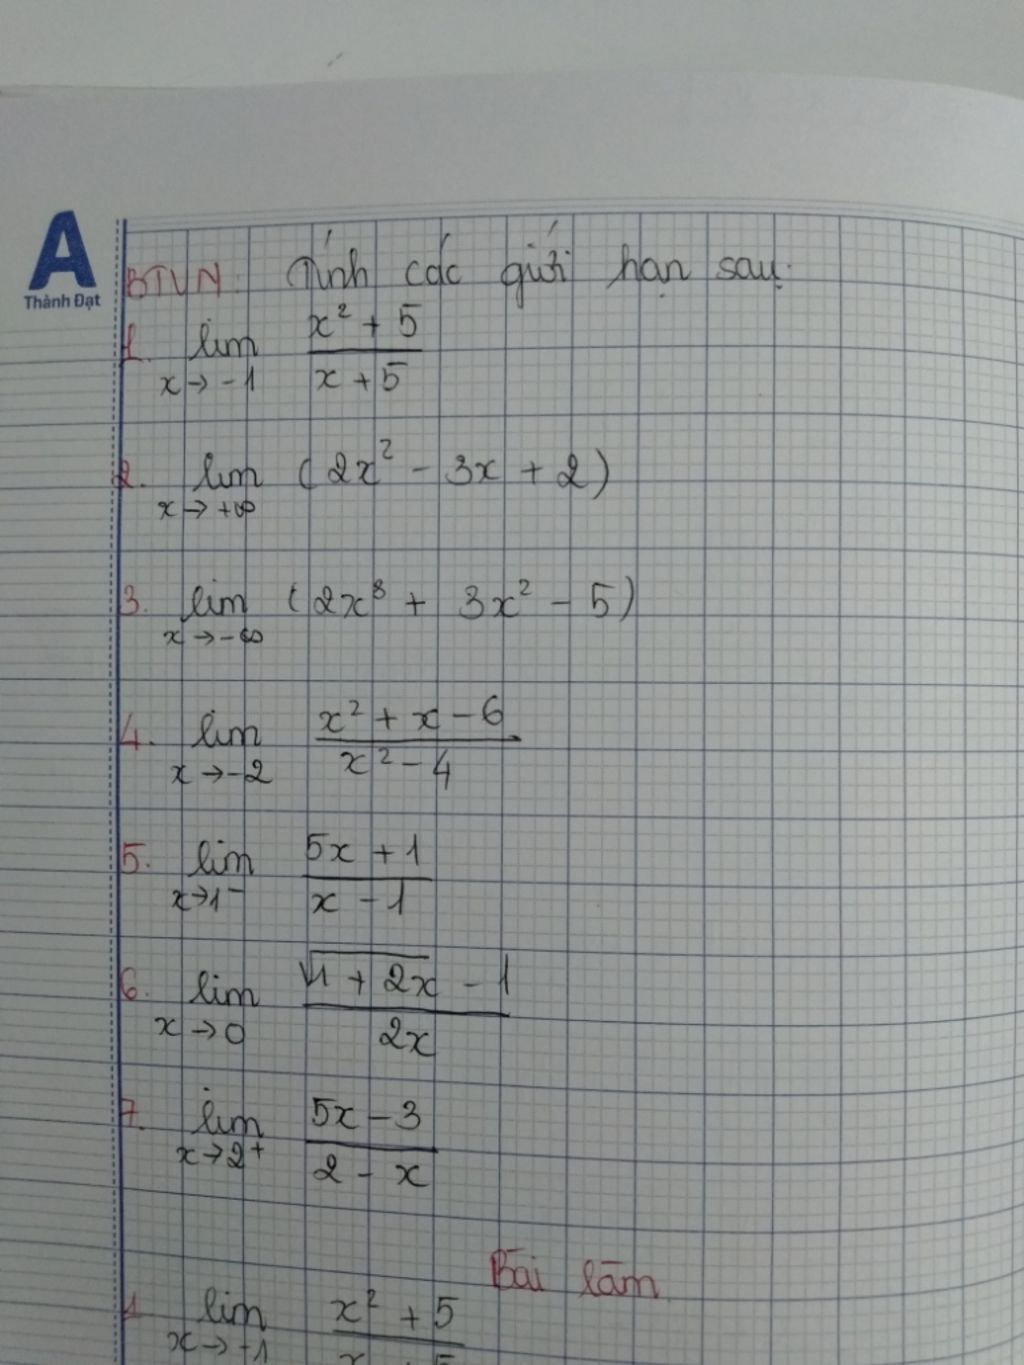 A
Thành Đạt
BTVN: Tính các giới hạn sau:
1. lim x² + 5
x → -1 x + 5
2. lim ( 2x² - 3x + 2 )
x → +∞
3. lim ( 2x⁸ + 3x² - 5 )
x → -∞
4. lim x² + x - 6
x → -2 x² - 4
5. lim 5x + 1
x → 1⁻ x - 1
6. lim √1 + 2x - 1
x → 0 2x
7. lim 5x - 3
x → 2⁺ 2 - x
Bài làm
1. lim x² + 5
x → -1